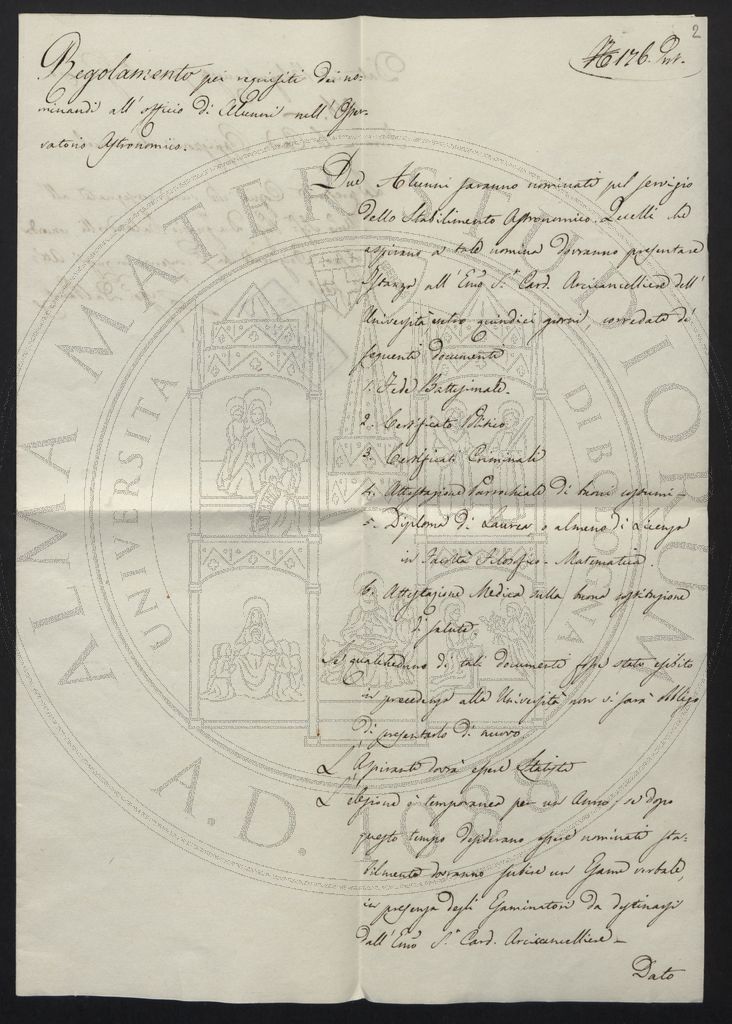 2
N° 176. Prot.
Regolamento pei requisiti dei no-
minandi all'officio di Alunni nell'Osser-
vatorio Astronomico.
Due Alunni saranno nominati pel servigio
dello Stabilimento Astronomico. Quelli che
aspirano a tale nomina dovranno presentare
Istanza all'Emo Sr. Card. Arcicancelliere dell'
Università entro quindici giorni corredata di
seguenti documenti
1. Fede Battesimale.
2. Certificato Politico
3. Certificati Criminali
4. Attestazione Parrochiale di buoni costumi -
5. Diploma di Laurea o almeno di Licenza
in Facoltà Filosofico-Matematica.
6. Attestazione Medica sulla buona costituzione
di salute.
Se qualcheduno di tali documenti fosse stato esibito
in precedenza alla Università non vi sarà obbligo
di presentarlo di nuovo
L'Aspirante dovrà essere Statista
L'elezione è temporanea per un Anno, se dopo
questo tempo desiderano essere nominati sta-
bilmente dovranno subire un Esame verbale,
in presenza degli Esaminatori da destinarsi
dall'Emo Sr. Card. Arcicancelliere -
Dato
ALMA MATER STUDIORUM
UNIVERSITA DI BOLOGNA
A.D. 1088